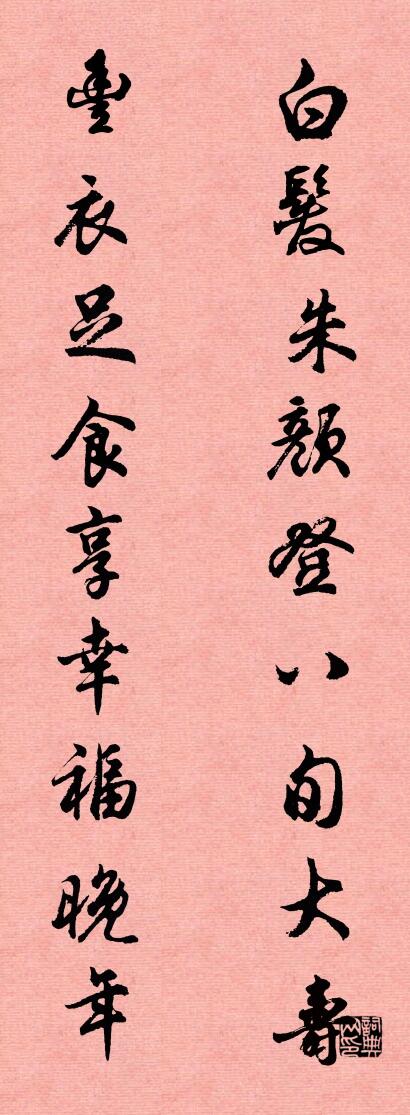 白髮朱顏登八旬大壽
豐衣足食享幸福晚年